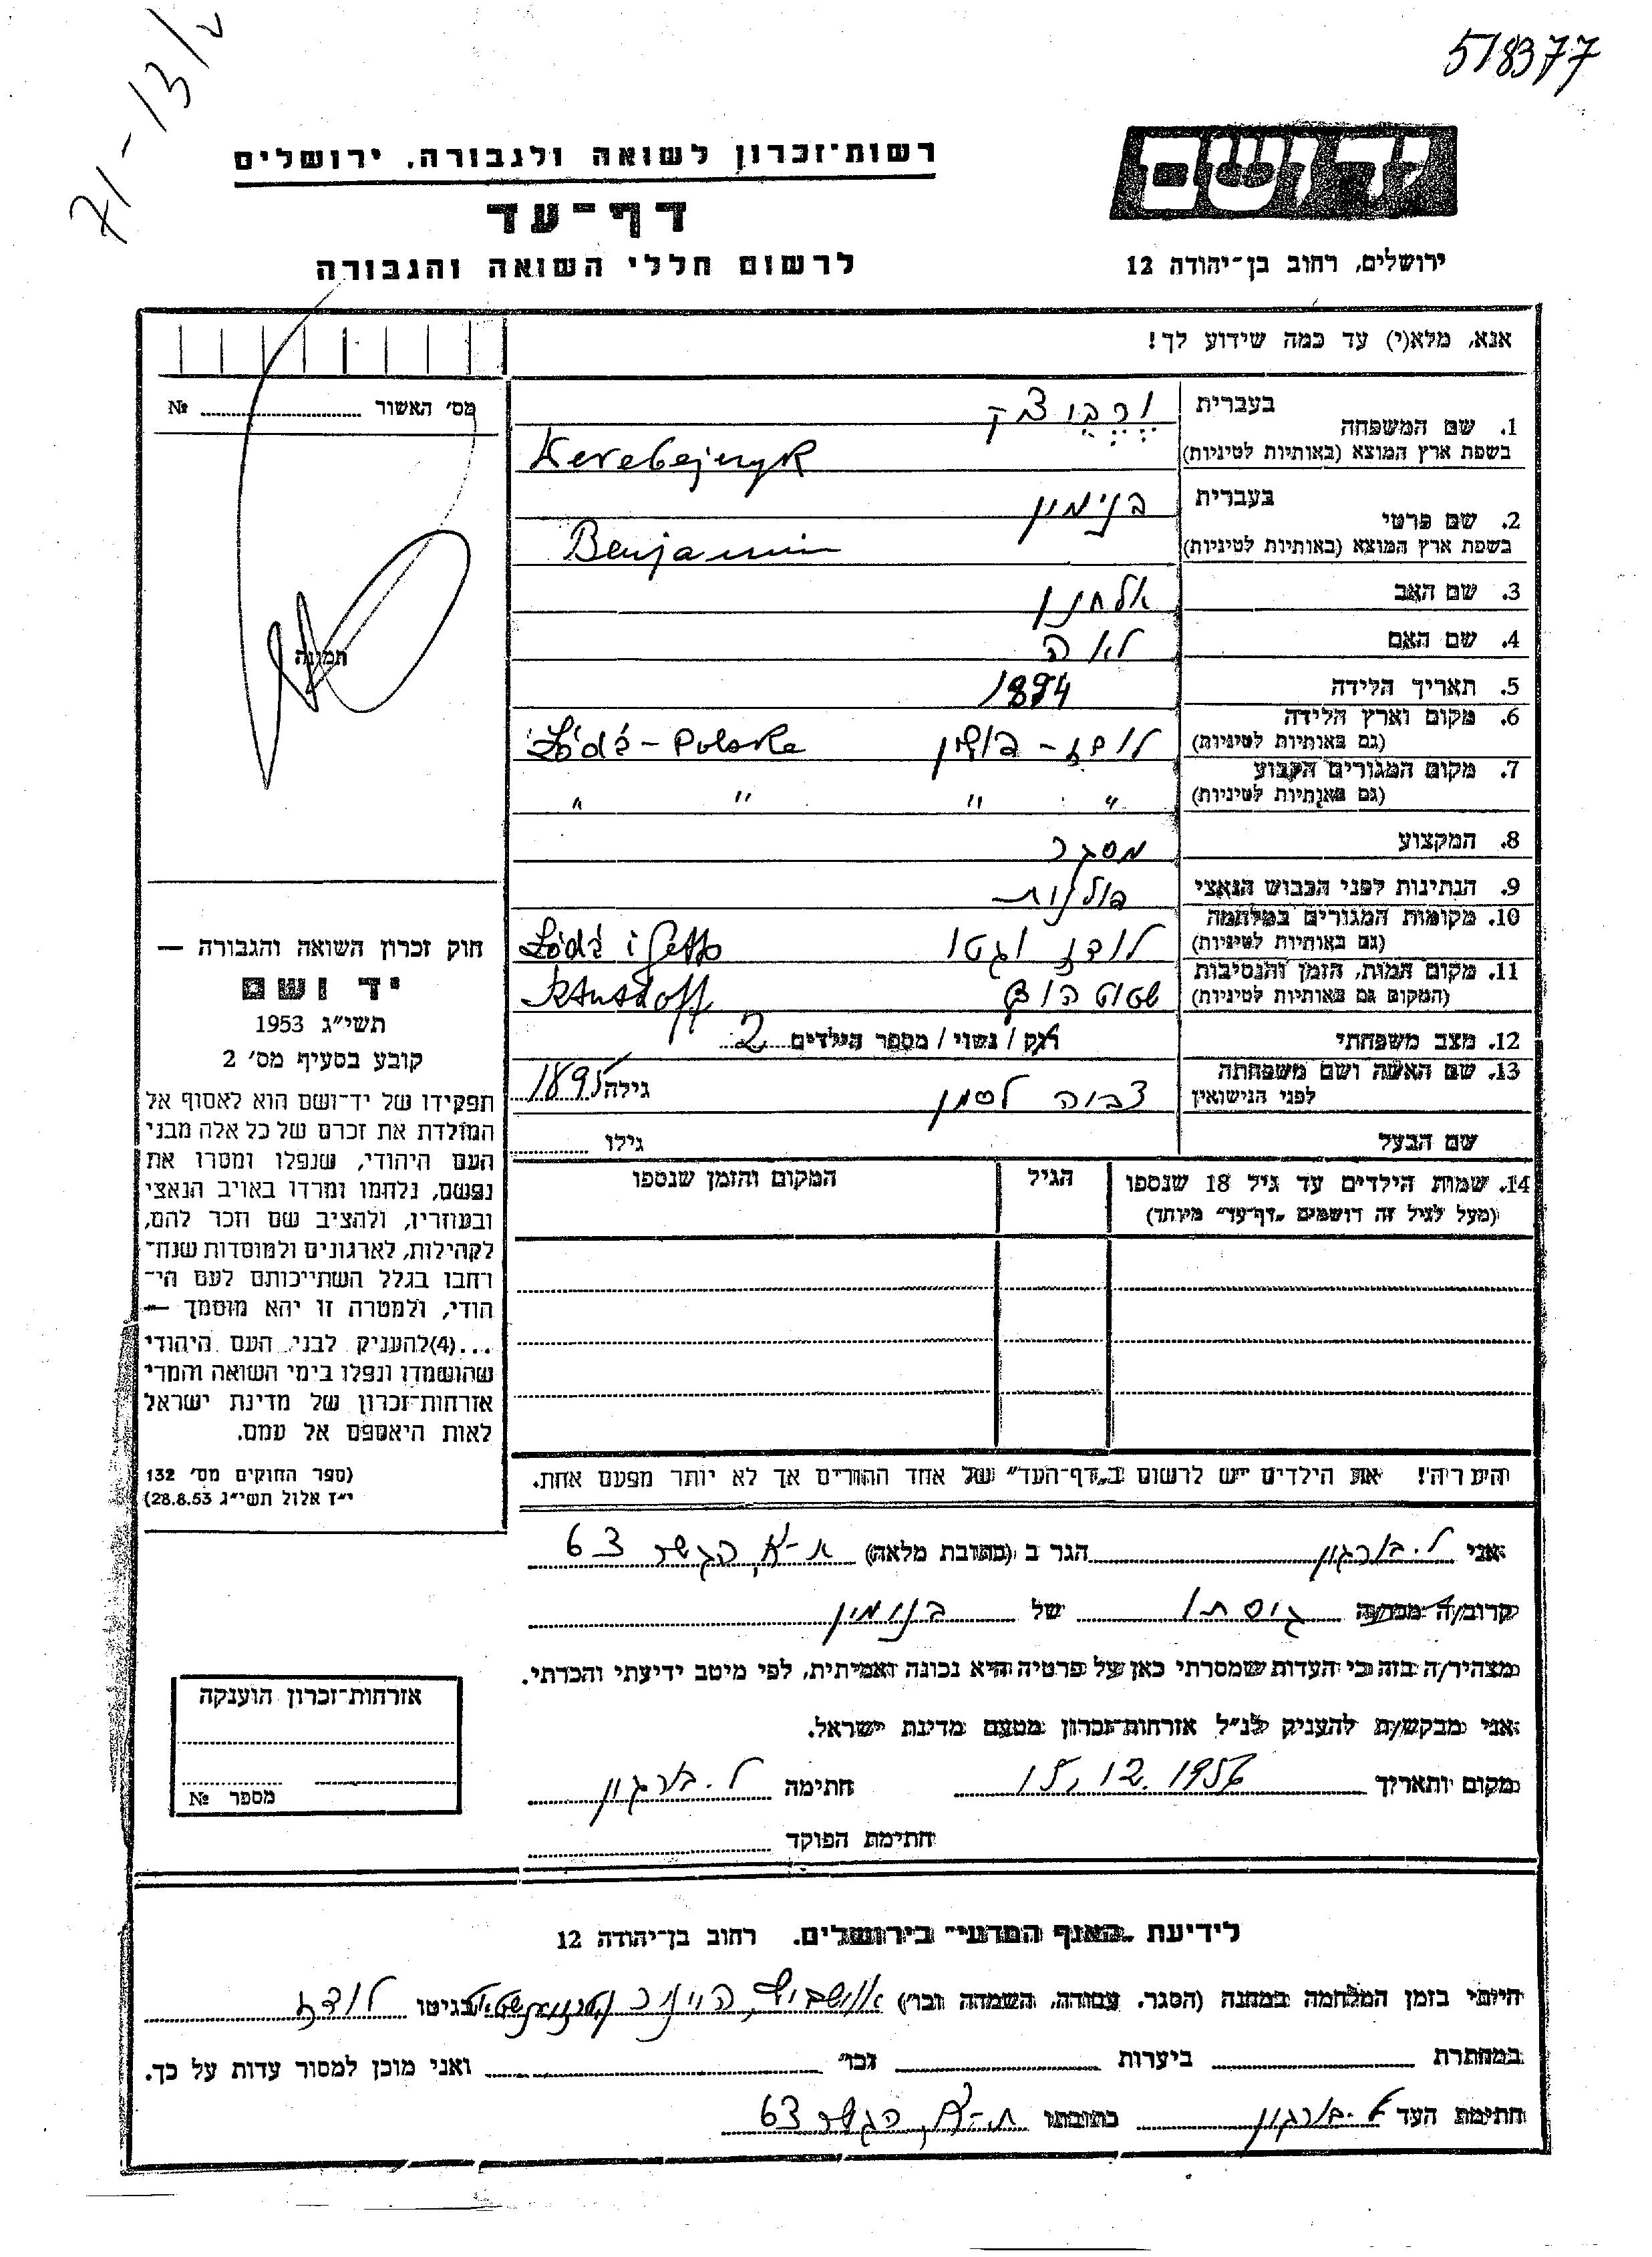 518377
71-13/
יד ושם
רשות־זכרון לשואה ולגבורה, ירושלים
דף־עד
לרשום חללי השואה והגבורה
ירושלים, רחוב בן־יהודה 12
אנא, מלא(י) עד כמה שידוע לך!
מס׳ האשור № 
1. שם המשפחה בעברית
בשפת ארץ המוצא (באותיות לטיניות)
2. שם פרטי בעברית בנימין
בשפת ארץ המוצא (באותיות לטיניות) Benjamin
3. שם האב אלחנן
4. שם האם לאה
5. תאריך הלידה 1894
6. מקום וארץ הלידה לודז - פולין Łódź - Polska
(גם באותיות לטיניות)
7. מקום המגורים הקבוע " " " "
(גם באותיות לטיניות)
8. המקצוע מסגר
9. הנתינות לפני הכבוש הנאצי פולנית
10. מקומות המגורים במלחמה לודז וגטו Łódź i getto
(גם באותיות לטיניות)
11. מקום המות, הזמן והנסיבות שטוטהוף
(המקום גם באותיות לטיניות)
12. מצב משפחתי רווק / נשוי / מספר הילדים 2
13. שם האשה ושם משפחתה לפני הנישואין צביה לסמן גילה 1895
שם הבעל גילו
14. שמות הילדים עד גיל 18 שנספו הגיל המקום והזמן שנספו
(מעל לגיל זה רושמים „דף־עד״ מיוחד)
תמונה
חוק זכרון השואה והגבורה —
יד ושם
תשי״ג 1953
קובע בסעיף מס׳ 2
תפקידו של יד־ושם הוא לאסוף אל
המולדת את זכרם של כל אלה מבני
העם היהודי, שנפלו ומסרו את
נפשם, נלחמו ומרדו באויב הנאצי
ובעוזריו, ולהציב שם וזכר להם,
לקהילות, לארגונים ולמוסדות שנח־
רבו בגלל השתייכותם לעם הי־
הודי, ולמטרה זו יהא מוסמך —
...(4)להעניק לבני העם היהודי
שהושמדו ונפלו בימי השואה והמרי
אזרחות־זכרון של מדינת ישראל
לאות היאספם אל עמם.
(ספר החוקים מס׳ 132
י״ז אלול תשי״ג 28.8.53)
הערה! את הילדים יש לרשום ב„דף־העד״ של אחד ההורים אך לא יותר מפעם אחת.
אני ל. בורגון הגר ב (כתובת מלאה) הגשר 63
קרוב/ה מכר/ה גיסתו של בנימין
מצהיר/ה בזה כי העדות שמסרתי כאן על פרטיה היא נכונה ואמיתית, לפי מיטב ידיעתי והכרתי.
אני מבקש/ת להעניק לנ״ל אזרחות־זכרון מטעם מדינת ישראל.
מקום ותאריך 15.12.1956 חתימה ל. בורגון
חתימת הפוקד
אזרחות־זכרון הוענקה
מספר №
לידיעת „האגף המדעי״ בירושלים. רחוב בן־יהודה 12
הייתי בזמן המלחמה במחנה (הסגר, עבודה, השמדה וכו׳) אושביץ, בגיטו לודז
במחתרת ביערות וכו׳ ואני מוכן למסור עדות על כך.
חתימת העד ל. בורגון כתובתו ת-א, הגשר 63